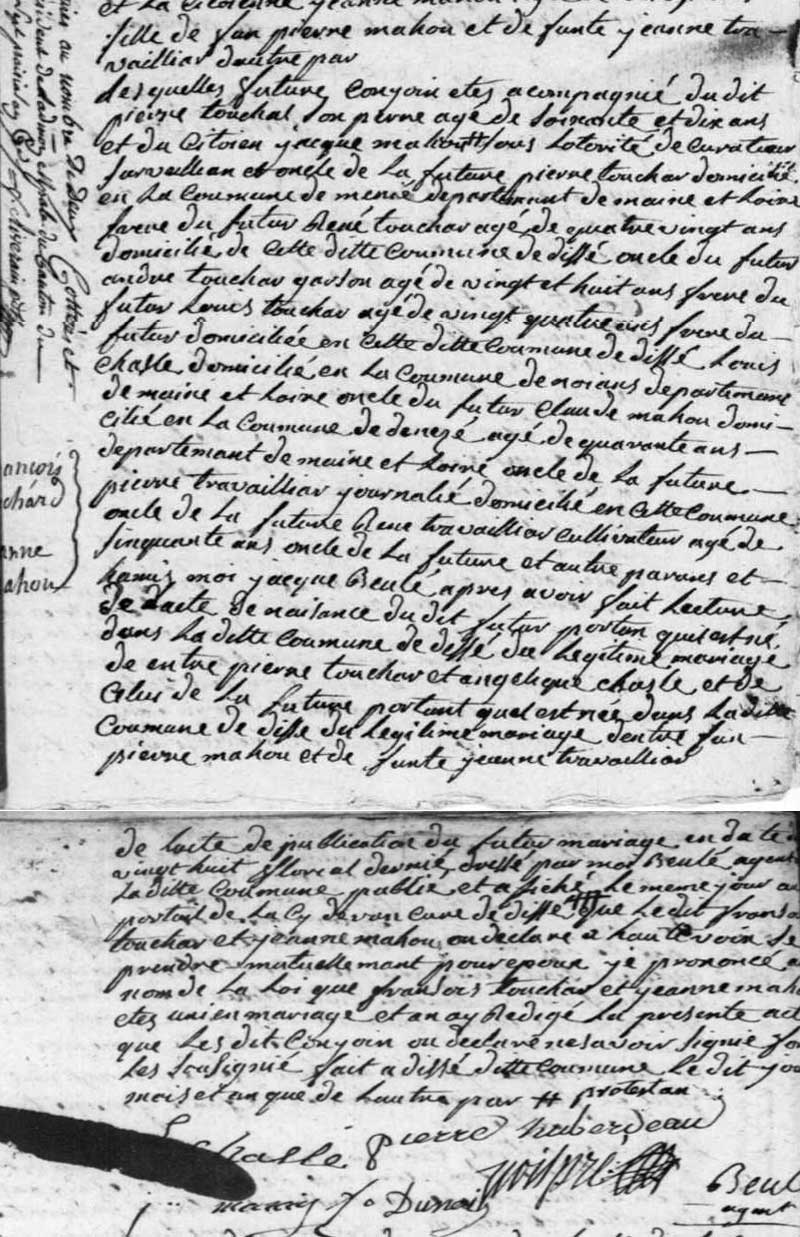 et la citoienne jeanne mahou
fille de fun pierre mahou et de funte jeanne tra-
vailliar dautre par
desquelles future conjoin etes acompagnié du dit
pierre touchar son perre agé de soixante et dix ans
et du citoien jacque mahou # sous lotorité de curateur
survaillian et oncle de la future pierre touchar domicilié
en la coumune de departemant de maine et loire
frere du futur René touchar agé de quatre vingt ans
domicilié de cette ditte coumune de dissé oncle du futur
andre touchar garson agé de vingt et huit ans frere du
futur Louis touchar agé de vingt quatre ans frere du-
futur domiciliée en cette ditte coumune de dissé Louis
chasle domicilié en la coumune de noians departemant
de maine et loire oncle du futur Claude mahou domi-
cilié en la coumune de denezé agé de quarante ans-
departemant de maine et loire oncle de la future-
pierre travailliar journalié domicilié en cette coumune
oncle de la future René travailliar cultivateur agé de
sinquante ans oncle de la future et autre parans et-
hamis moi jacque Beulé apres avoir fait lecture
de lacte de naisance du dit futur portan quil est né
dans la ditte coumune de dissé du legitime mariage
de entre pierre touchar et angelique chasle et de
celui de la future portant quel est née dans la ditte
coumune de disse du legitime mariage dentre fun-
pierre mahou et de funte jeanne travailliar
ancois
chard
anne
ahou
de lacte de publication du futur mariage en date
vingt huit floreal dernié dressé par moi Beulé agent
la ditte coumune publie et afiché le meme jour au
portail de la cy devan cure de dissé que le dit fransois
touchar et jeanne mahou on declaré a haute voix se
prendre mutuellemant pour epoux je prononcé au
nom de la loi que fransois touchar et jeanne mahou
etes uni en mariage et an ay Redigé la presente acte
que les dits conjoin on declare ne savoir signié
les sousignié fait a dissé ditte coumune le dit jour
mois et an que de lautre par # protestan
chasle pierre huberdeau
Beul
agent